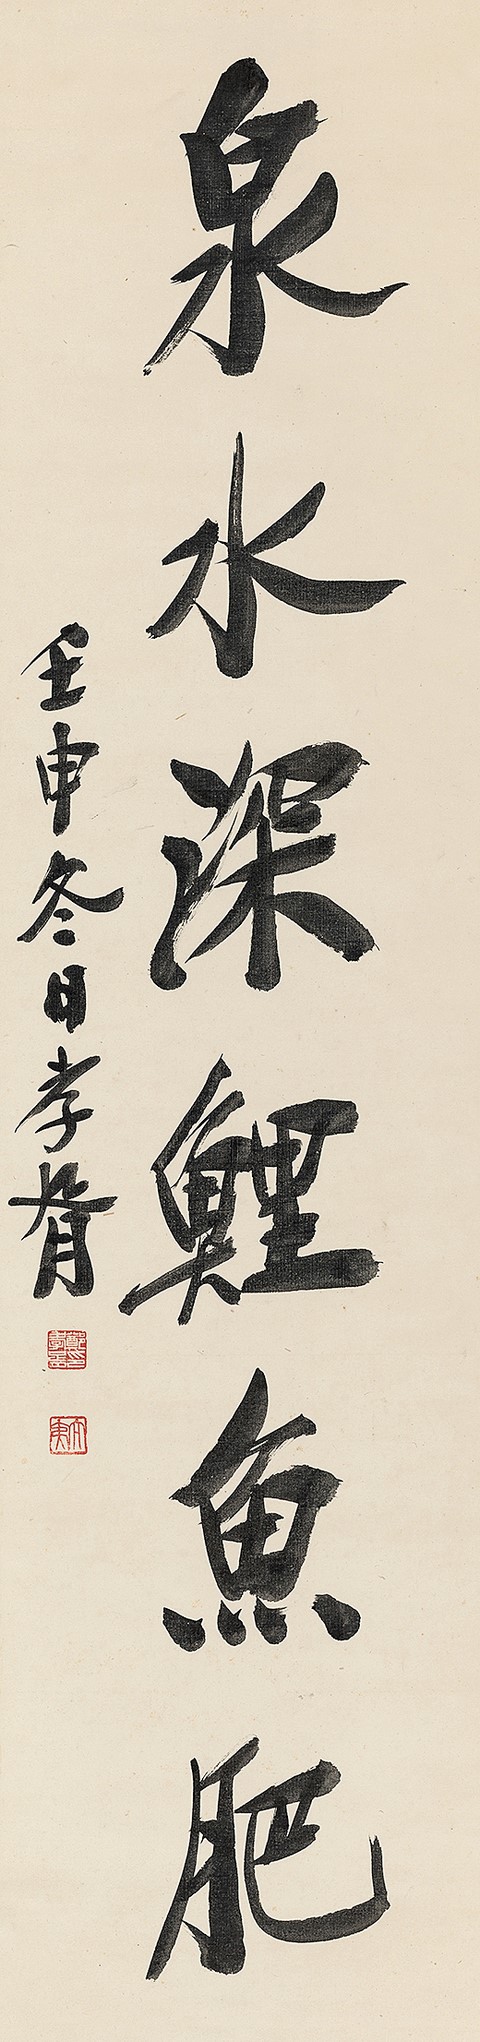 泉水深鯉魚肥
壬申冬日孝胥